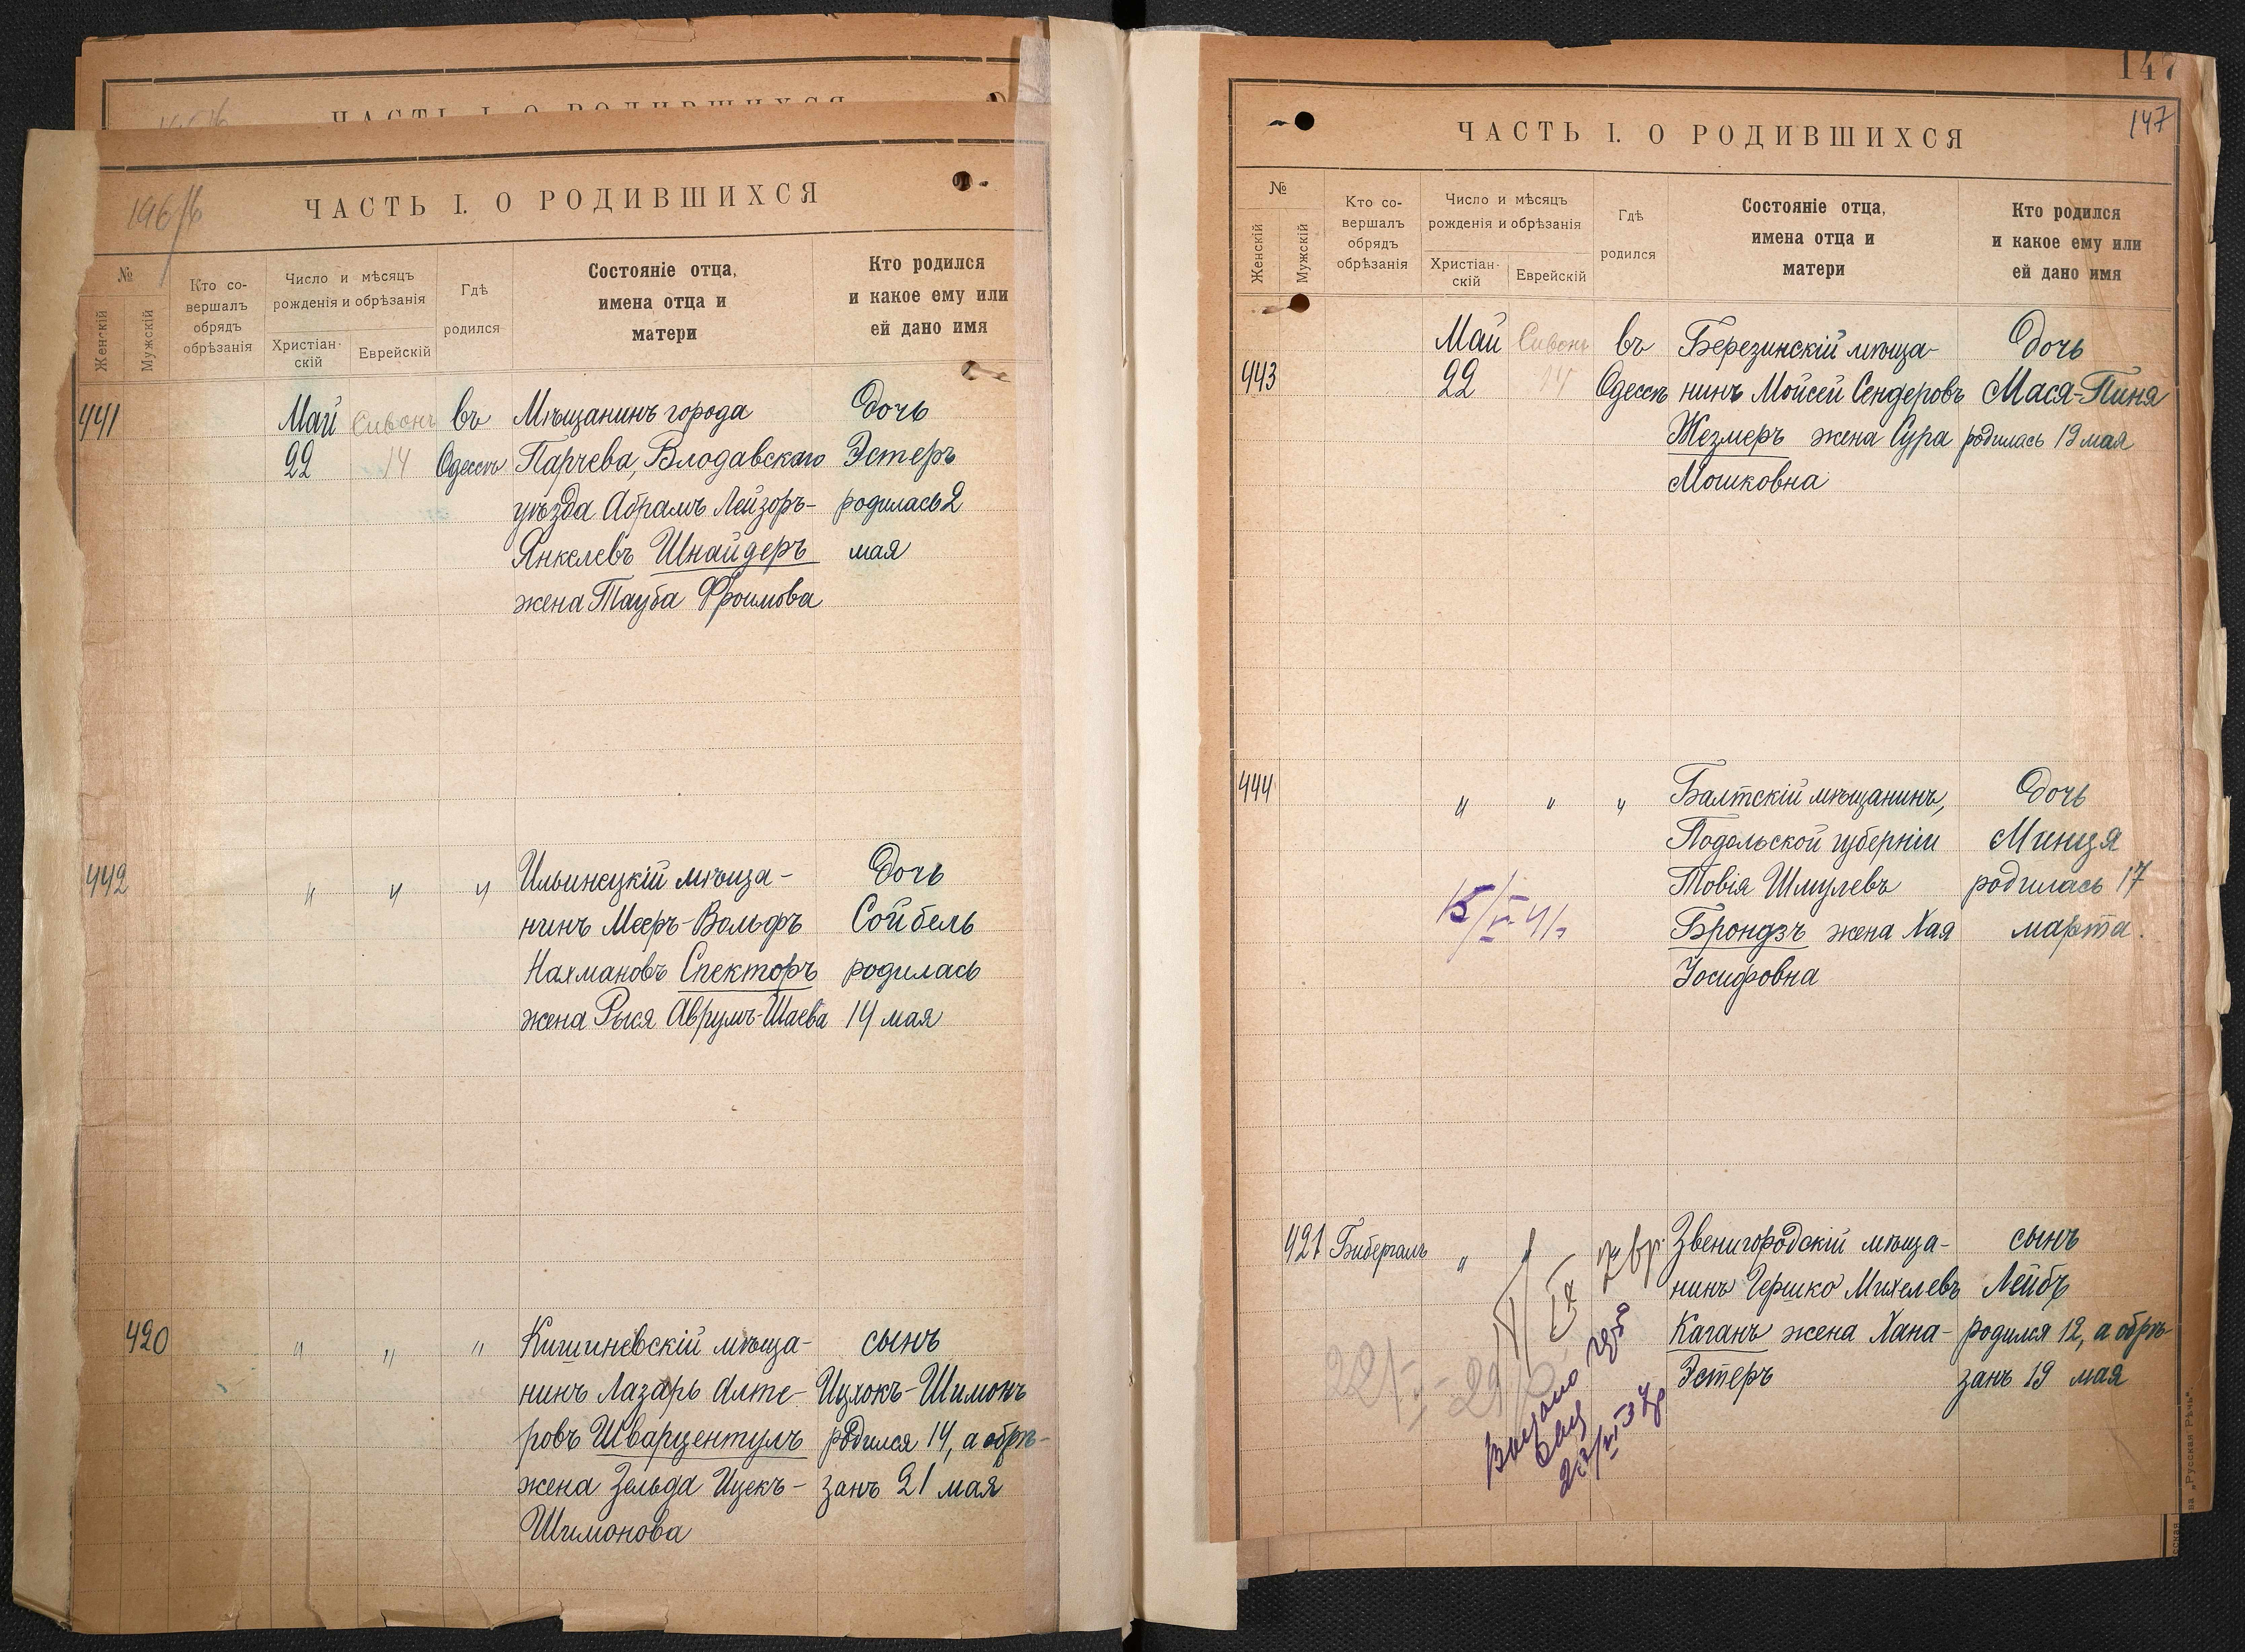 ЧАСТЬ I. О РОДИВШИХСЯ
146
ЧАСТЬ I. О РОДИВШИХСЯ
№
Женскій
Мужскій
Кто со-
вершалъ
обрядъ
обрѣзанія
Число и мѣсяцъ
рожденія и обрѣзанія
Христіан-
скій
Еврейскій
Гдѣ
родился
Состояніе отца,
имена отца и
матери
Кто родился
и какое ему или
ей дано имя
441 Май Сивонъ въ Мѣщанинъ города Дочь
22 14 Одессѣ Парчева, Влодавскаго Эстеръ
уѣзда Абрамъ Лейзоръ- родилась 2
Янкелевъ Шнайдеръ мая
жена Тауба Фроимова
442 " " " Ильинецкій мѣща- Дочь
нинъ Мееръ-Вольфъ Сойбель
Нахмановъ Спекторъ родилась
жена Рыся Аврумъ-Шаева 14 мая
420 " " " Кишиневскій мѣща- сынъ
нинъ Лазарь Алте- Ицхокъ-Шимонъ
ровъ Шварцентулъ родился 14, а обрѣ-
жена Зельда Ицекъ- занъ 21 мая
Шимонова
147
147
ЧАСТЬ I. О РОДИВШИХСЯ
№
Женскій
Мужскій
Кто со-
вершалъ
обрядъ
обрѣзанія
Число и мѣсяцъ
рожденія и обрѣзанія
Христіан-
скій
Еврейскій
Гдѣ
родился
Состояніе отца,
имена отца и
матери
Кто родился
и какое ему или
ей дано имя
Май Сивонъ въ Березинскій мѣща- Дочь
443 22 14 Одессѣ нинъ Мойсей Сендеровъ Мася-Пиня
Жезмеръ жена Сура родилась 19 мая
Мошковна
444 " " " Балтскій мѣщанинъ, Дочь
Подольской губерніи Минця
Товія Шмулевъ родилась 17
Брондзъ жена Хая марта.
Іосифовна
421 Бибергалъ " " " Звенигородскій мѣща- сынъ
нинъ Гершко Михелевъ Лейбъ
Каганъ жена Хана- родился 12, а обрѣ-
Эстеръ занъ 19 мая
„Русская Рѣчь"